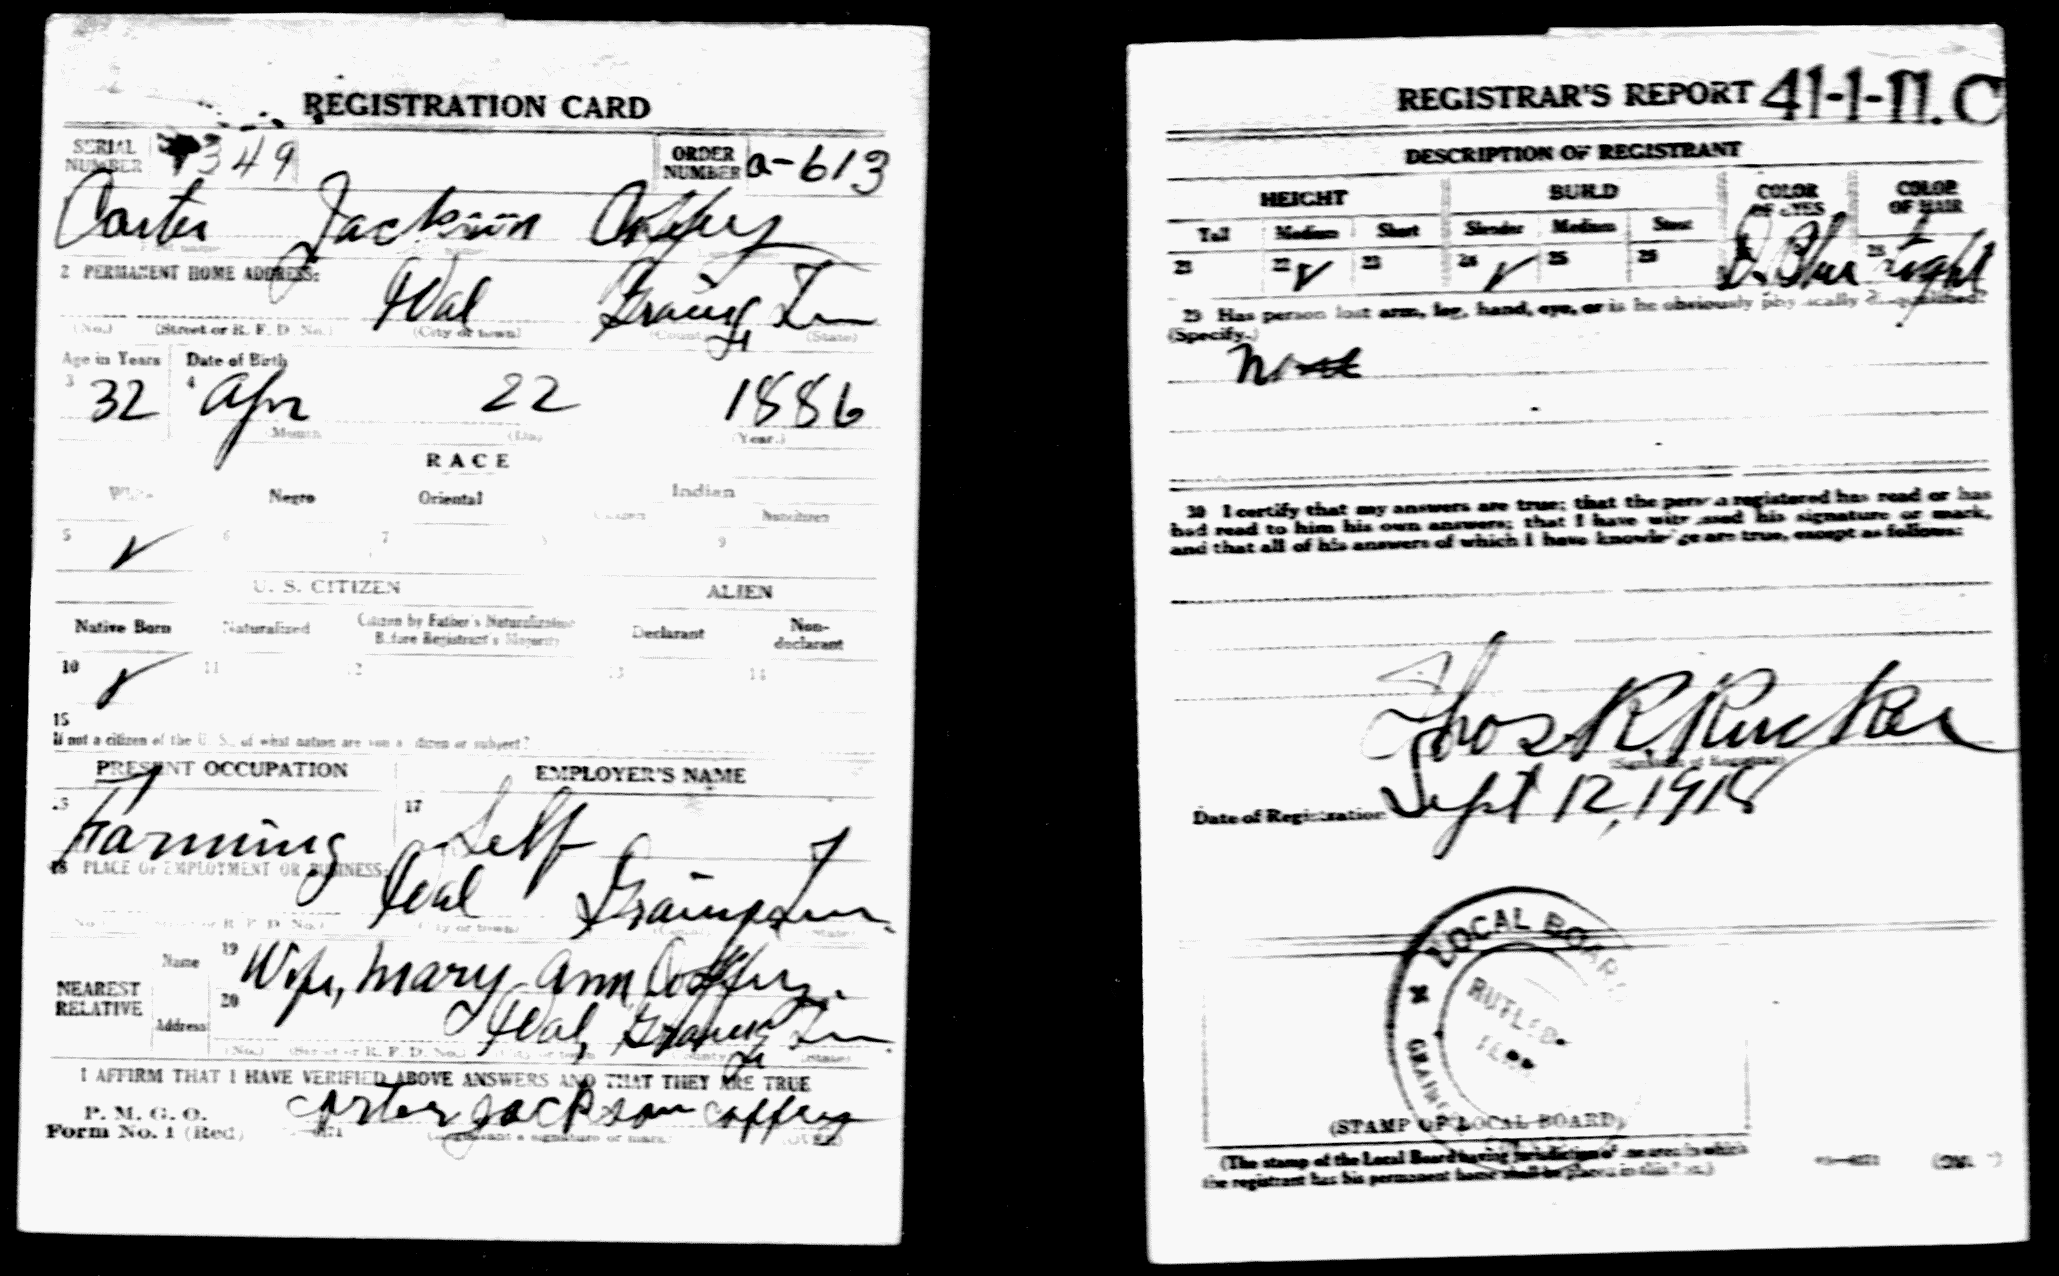 REGISTRATION CARD
SERIAL NUMBER 1349 ORDER NUMBER a-613
Carter Jackson Coffey
2 PERMANENT HOME ADDRESS: Idol Grainger Tenn
(No.) (Street or R. F. D. No.) (City or town) (County) (State)
Age in Years Date of Birth
3 32 4 Apr 22 1886
(Month) (Day) (Year.)
RACE
White Negro Oriental Indian
Citizen Noncitizen
5 ✓ 6 7 8 9
U. S. CITIZEN ALIEN
Native Born Naturalized Citizen by Father's Naturalization Before Registrant's Majority Declarant Non-declarant
10 ✓ 11 12 13 14
15
If not a citizen of the U. S., of what nation are you a citizen or subject?
PRESENT OCCUPATION EMPLOYER'S NAME
16 Farming 17 Self
18 PLACE OF EMPLOYMENT OR BUSINESS:
Idol Grainger Tenn
(No.) (Street or R. F. D. No.) (City or town) (County) (State)
NEAREST RELATIVE Name 19 Wife, Mary Ann Coffey
Address 20 Idol, Grainger Tenn
(No.) (Street or R. F. D. No.) (City or town) (County) (State)
I AFFIRM THAT I HAVE VERIFIED ABOVE ANSWERS AND THAT THEY ARE TRUE
P. M. G. O.
Form No. 1 (Red) Carter Jackson Coffey
(Registrant's signature or mark) (OVER)
REGISTRAR'S REPORT 41-1-11. C
DESCRIPTION OF REGISTRANT
HEIGHT BUILD COLOR OF EYES COLOR OF HAIR
Tall Medium Short Slender Medium Stout
21 22 ✓ 23 24 ✓ 25 26 D. Blue 28 Light
29 Has person lost arm, leg, hand, eye, or is he obviously physically disqualified?
(Specify.)
30 I certify that my answers are true; that the person registered has read or has
had read to him his own answers; that I have witnessed his signature or mark,
and that all of his answers of which I have knowledge are true, except as follows:
Thos R. Rucker
(Signature of Registrar)
Date of Registration Sept 12, 1918
LOCAL BOARD
RUTLEDGE
TENN
(STAMP OF LOCAL BOARD)
(The stamp of the Local Board having jurisdiction of the area in which
the registrant has his permanent home shall be placed in this box.)